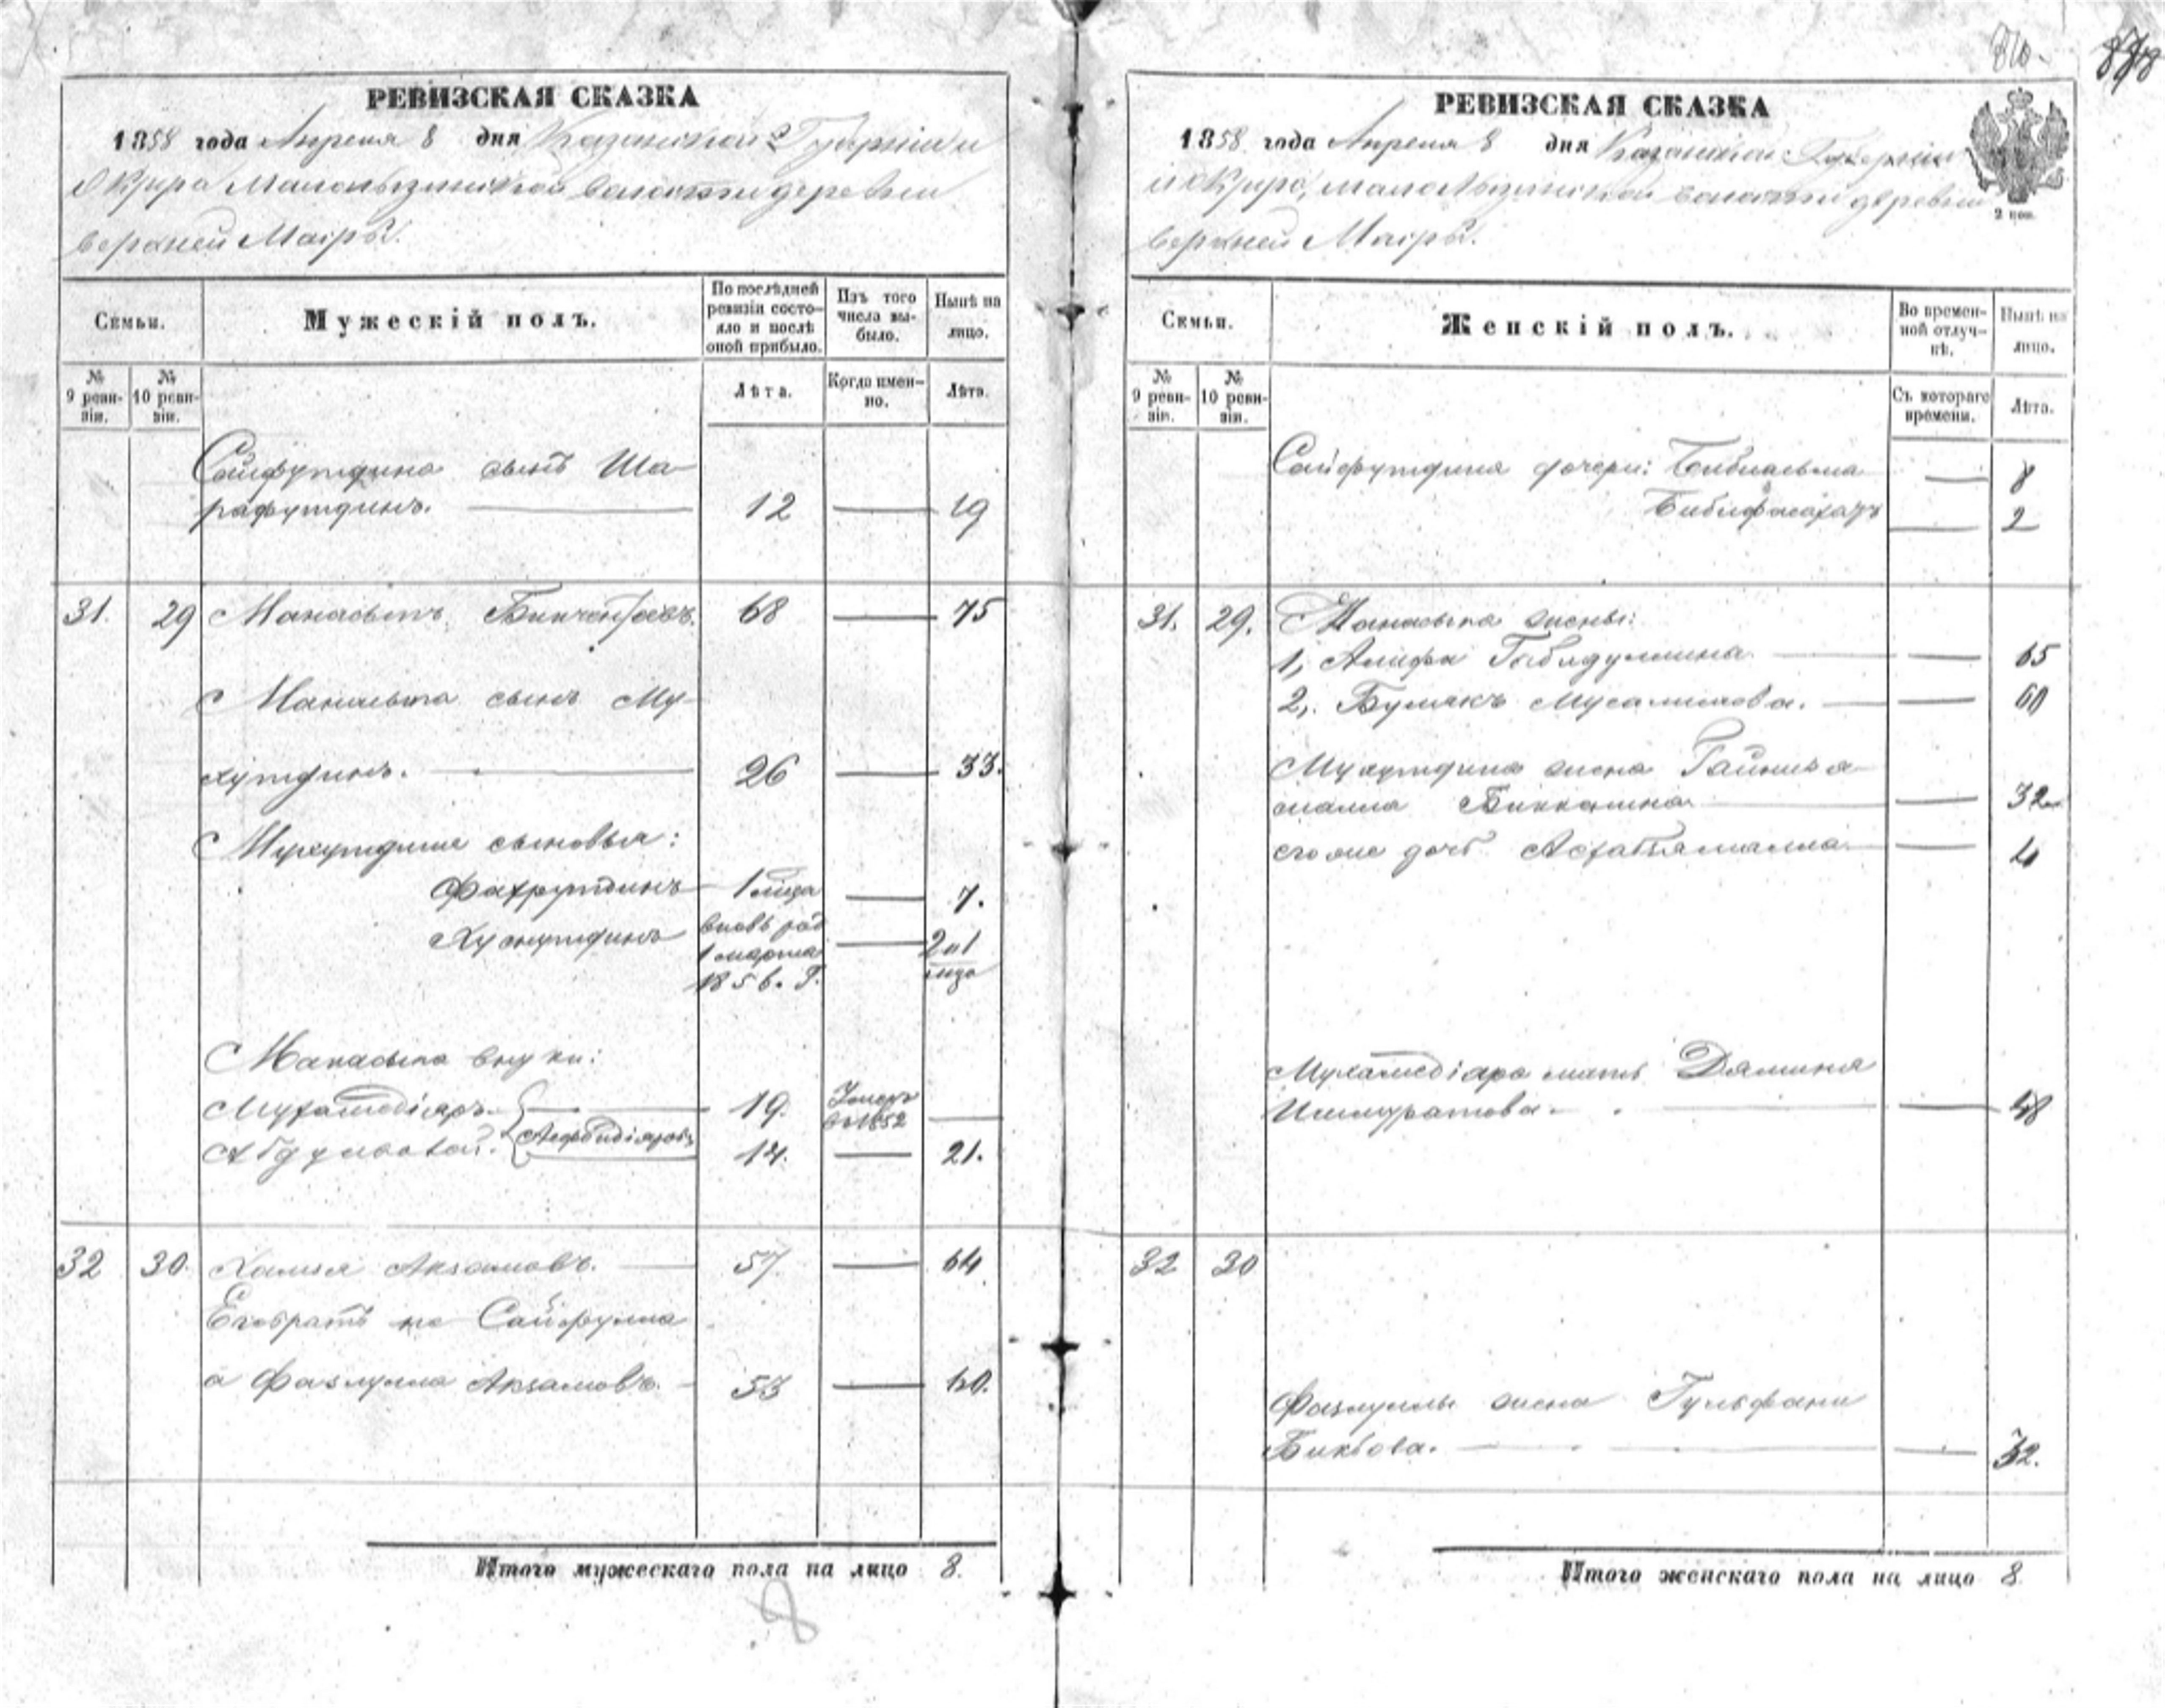 878
РЕВИЗСКАЯ СКАЗКА
1858 года Апреля 8 дня Казанской Губерніи и
Округа Малолызинской волости деревни
верхней Маіры.
Семьи.
Мужескій полъ.
По послѣдней ревизіи состояло и послѣ оной прибыло.
Изъ того числа выбыло.
Нынѣ на лицо.
№ 9 ревизіи.
№ 10 ревизіи.
Лѣта.
Когда именно.
Лѣта.
Сайфутдина сынъ Ша-
рафутдинъ. 12 — 19
31. 29 Манасыпъ 68 — 75
Манасыпа сынъ Му-
хутдинъ. 26 — 33.
Мухутдина сыновья:
Фахрутдинъ 1 міца — 7.
Хуснутдинъ вновь род 1 марта 1856. Г. — 2 и 1 міца
Манасыпа внуки:
Мухаметдіяръ 19. Умеръ въ 1852 —
14. — 21.
32 30. Аксамовъ. 57. — 64
Его братъ не Сайфулла
а Фазлулла Аксамовъ. 53 — 60.
Итого мужескаго пола на лицо 8.
8
РЕВИЗСКАЯ СКАЗКА
1858 года Апреля 8 дня Казанской Губерніи
и Округа, Малолызинской волости деревни
верхней Маіры.
2 коп.
Семьи.
Женскій полъ.
Во временной отлучкѣ.
Нынѣ на лицо.
№ 9 ревизіи.
№ 10 ревизіи.
Съ котораго времени.
Лѣта.
Сайфутдина дочери: Бибиасьма — 8
— 2
31. 29. Манасыпа жены:
1, Алифа Габидуллина — 65
2, Булякъ Мусалимова. — 60
Мухутдина жена
Биккинина — 32
его же дочь — 4
Мухаметдіяра мать Дямиля
Ишмуратова. — 48
32 30
Фазлуллы жена Гульфани
Бикѣева. — 32.
Итого женскаго пола на лицо 8